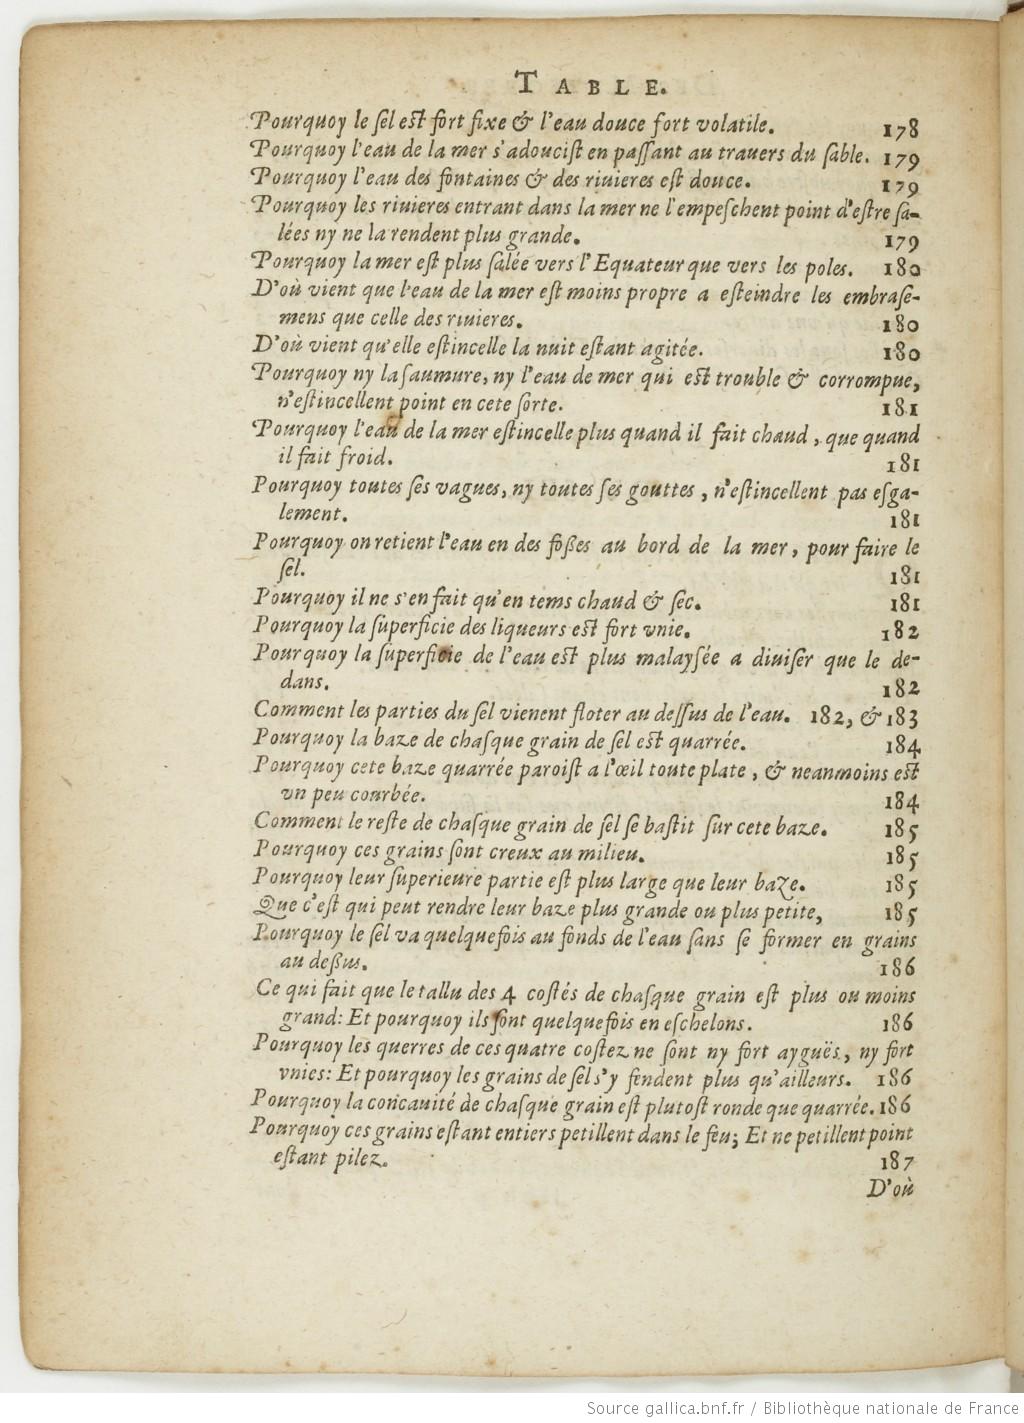 TABLE.
Pourquoy le ſel eſt fort fixe & l'eau douce fort volatile. 178
Pourquoy l'eau de la mer s'adouciſt en paſſant au trauers du ſable. 179
Pourquoy l'eau des fontaines & des riuieres eſt douce. 179
Pourquoy les riuieres entrant dans la mer ne l'empeſchent point d'eſtre ſa-
lées ny ne la rendent plus grande. 179
Pourquoy la mer eſt plus ſalée vers l'Equateur que vers les poles. 180
D'où vient que l'eau de la mer eſt moins propre a eſteindre les embraſe-
mens que celle des riuieres. 180
D'où vient qu'elle eſtincelle la nuit eſtant agitée. 180
Pourquoy ny la ſaumure, ny l'eau de mer qui eſt trouble & corrompue,
n'eſtincellent point en cete ſorte. 181
Pourquoy l'eau de la mer eſtincelle plus quand il fait chaud, que quand
il fait froid. 181
Pourquoy toutes ſes vagues, ny toutes ſes gouttes, n'eſtincellent pas eſga-
lement. 181
Pourquoy on retient l'eau en des foßes au bord de la mer, pour faire le
ſel. 181
Pourquoy il ne s'en fait qu'en tems chaud & ſec. 181
Pourquoy la ſuperficie des liqueurs eſt fort vnie. 182
Pourquoy la ſuperficie de l'eau eſt plus malayſée a diuiſer que le de-
dans. 182
Comment les parties du ſel vienent floter au deſſus de l'eau. 182, & 183
Pourquoy la baze de chaſque grain de ſel eſt quarrée. 184
Pourquoy cete baze quarrée paroiſt a l'œil toute plate, & neanmoins eſt
vn peu courbée. 184
Comment le reſte de chaſque grain de ſel ſe baſtit ſur cete baze. 185
Pourquoy ces grains ſont creux au milieu. 185
Pourquoy leur ſuperieure partie eſt plus large que leur baze. 185
Que c'eſt qui peut rendre leur baze plus grande ou plus petite, 185
Pourquoy le ſel va quelquefois au fonds de l'eau ſans ſe former en grains
au deßus. 186
Ce qui fait que le tallu des 4 coſtés de chaſque grain eſt plus ou moins
grand: Et pourquoy ils ſont quelquefois en eſchelons. 186
Pourquoy les querres de ces quatre coſtez ne ſont ny fort ayguës, ny fort
vnies: Et pourquoy les grains de ſel s'y fendent plus qu'ailleurs. 186
Pourquoy la concauité de chaſque grain eſt plutoſt ronde que quarrée. 186
Pourquoy ces grains eſtant entiers petillent dans le feu; Et ne petillent point
eſtant pilez. 187
D'où
Source gallica.bnf.fr / Bibliothèque nationale de France